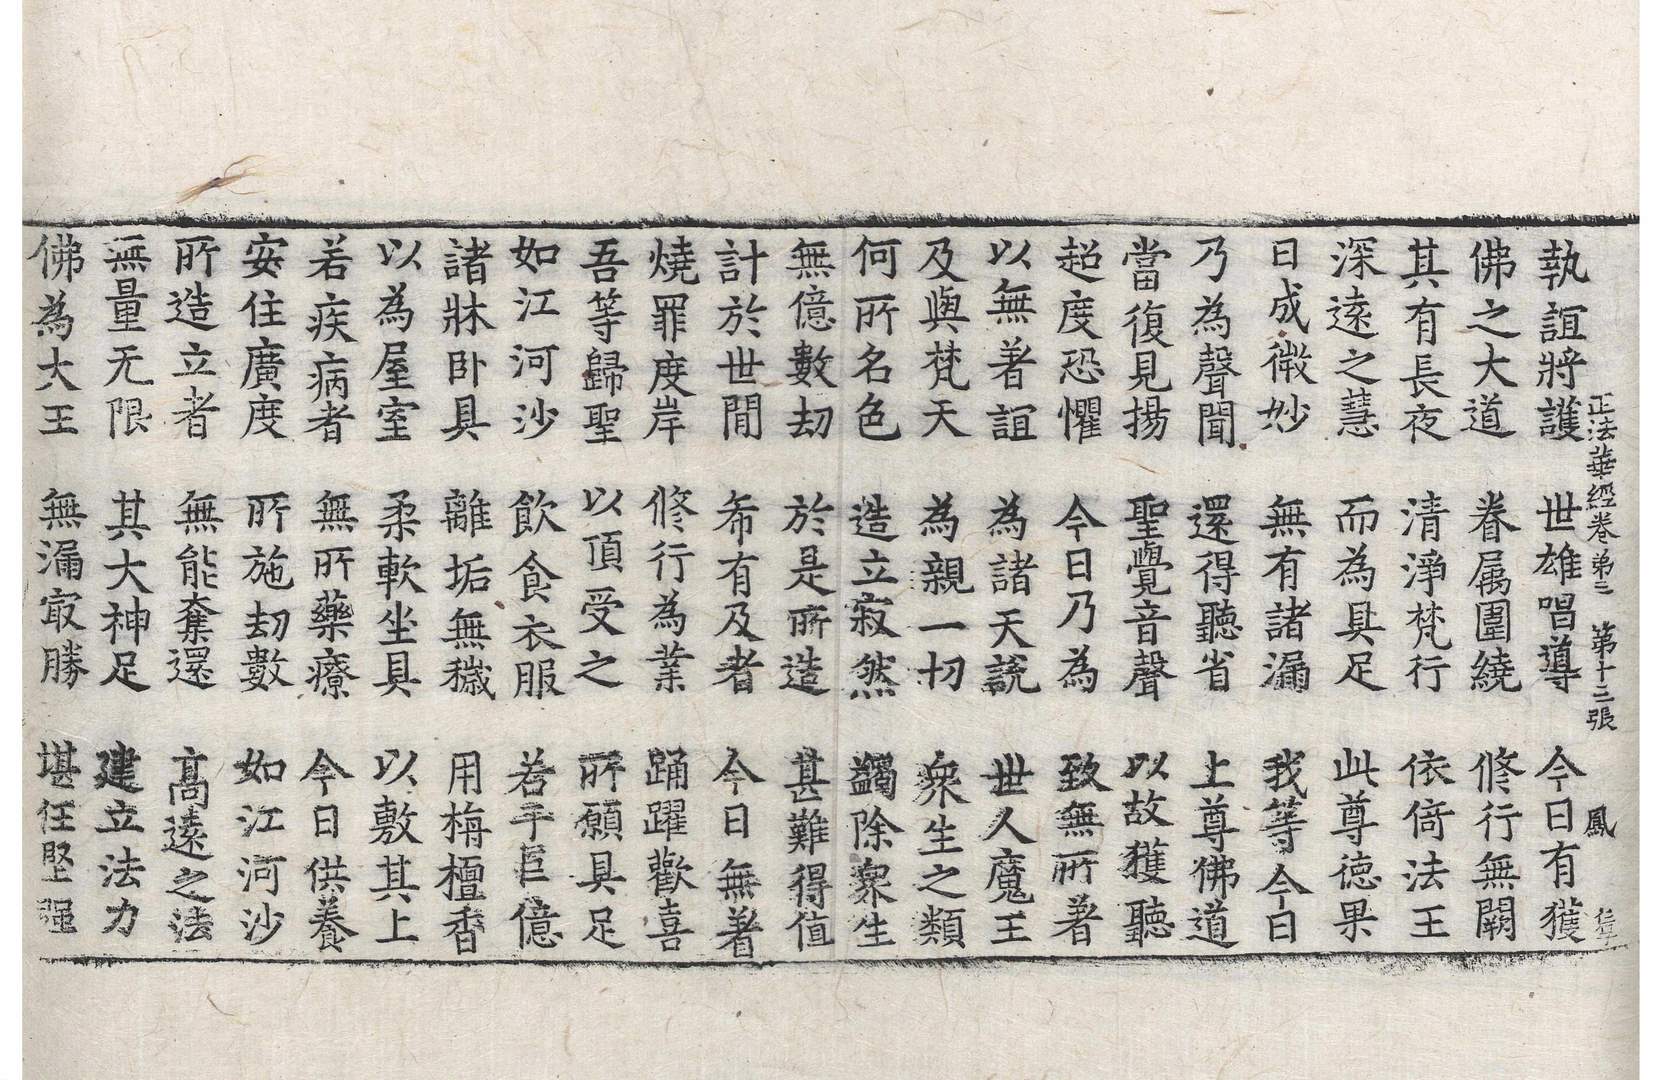 執誼將護　世雄唱導　今日有獲
正法華經卷弟三　第十三張　鳳
佛之大道　眷属圍繞　修行無闕
其有長夜　清淨梵行　依倚法王
深遠之慧　而為具足　此尊德果
日成微妙　無有諸漏　我等今日
乃為聲聞　還得聽省　上尊佛道
當復見揚　聖覺音聲　以故獲聽
超度恐懼　今日乃為　致無所著
以無著誼　為諸天説　世人魔王
及與梵天　為親一切　衆生之類
何所名色　造立寂然　蠲除衆生
無億數劫　於是所造　甚難得值
計於世間　希有及者　今日無著
燒罪度岸　修行為業　踊躍歡喜
吾等歸聖　以頂受之　所願具足
如江河沙　飲食衣服　若干巨億
諸牀卧具　離垢無穢　用栴檀香
以為屋室　柔軟坐具　以敷其上
若疾病者　無所藥療　今日供養
安住廣度　所施劫數　如江河沙
所造立者　無能奪還　髙遠之法
無量无限　其大神足　建立法力
佛為大王　無漏㝡勝　堪任堅强